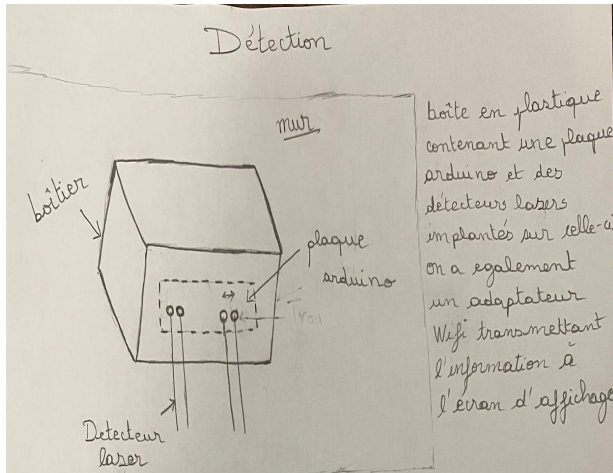 Détection
mur
boîtier
plaque
arduino
Trou
Detecteur
laser
boîte en plastique
contenant une plaque
arduino et des
détecteurs lasers
implantés sur celle-ci
on a egalement
un adaptateur
Wifi transmettant
l'information à
l'écran d'affichage